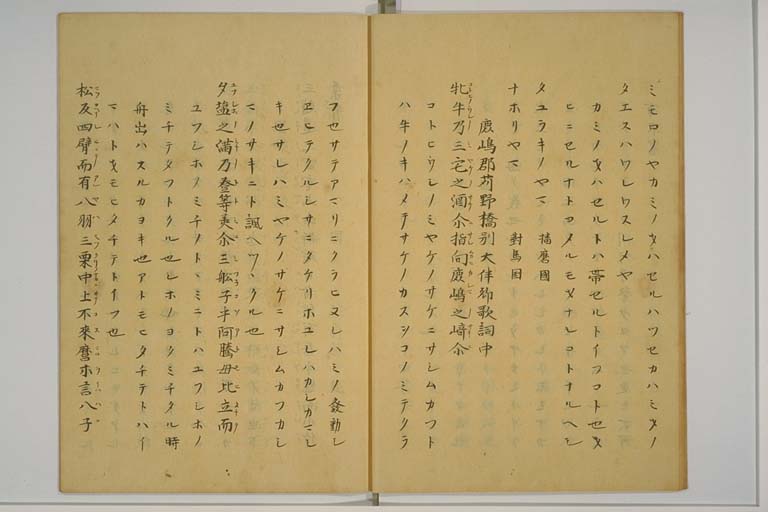 ミモロノヤカミノオハセルハツセカハミオノ
タエスハワレワスレメヤ
カミノオハセルトハ帯セルトイフコト也オ
ヒニセルナトヨメルモオナシコトナルヘシ
タユラキノヤマ 播磨國
ナホリヤマ 對馬国
鹿嶋郡苅野橋別大伴卿歌詞中
牝牛乃三宅之酒尒指向鹿嶋之﨑尒
コトヒウシノミヤケノサケニサシムカフト
ハ牛ノキハメテサケノカスシコノミテクラ
フ也サテアマリニクラヒヌレハミノ發動シ
ヱヒテクルシサニタケリホユレハカシカマシ
キ也サレハミヤケノサケニサシムカフカシ
マノサキニト諷ヘツヽクル也
夕塩之満乃登等美尒三舩子乎阿騰母比立而
ユフシホノミチノトヽミニトハユフシホノ
ミチテタフトクル也シホノヨクミチタル時
舟出ハスルカヨキ也アトモヒタチテトハイ
マハトオモヒタチテトイフ也
松反四臂而有八羽三栗中上不來麿等言八子